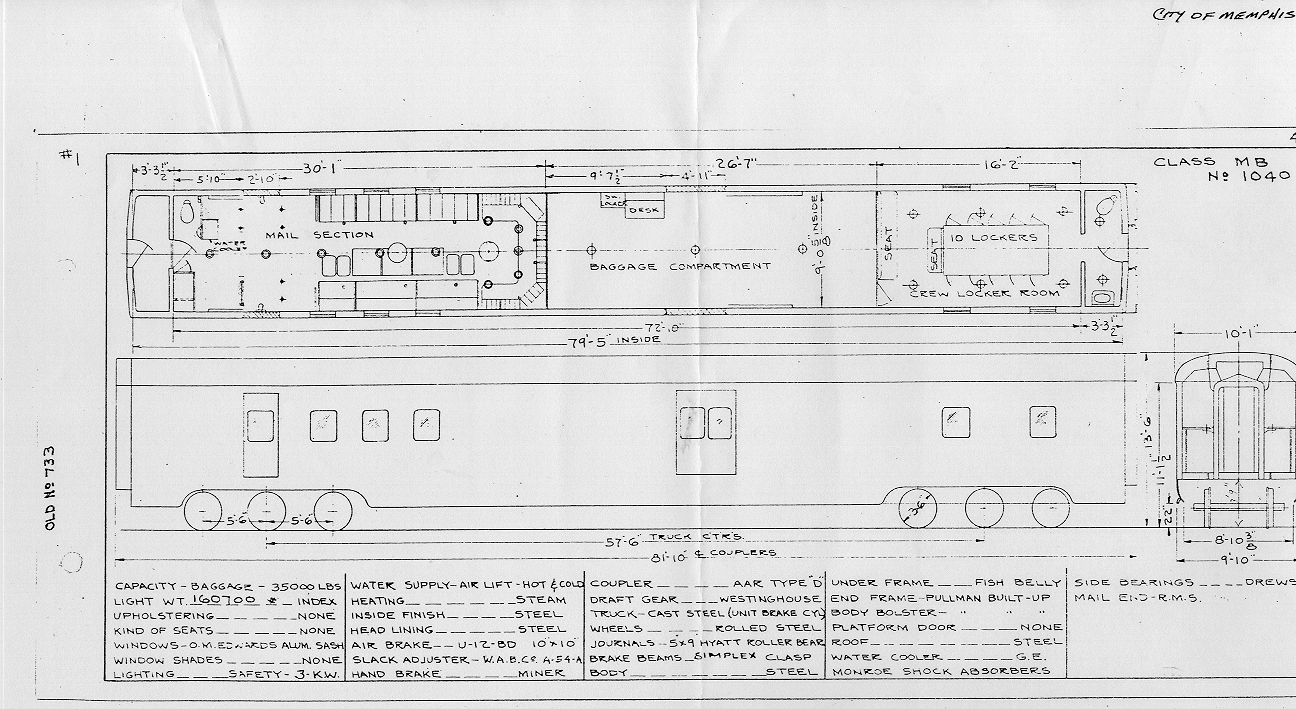 CITY OF MEMPHIS
#1
CLASS MB
No 1040
3'-3½"
30'-1"
26'-7"
16'-2"
5'-10"
2'-10"
9'-7½"
4'-11"
WATER COOLER
MAIL SECTION
DESK
BAGGAGE COMPARTMENT
9'-0⅝" INSIDE
SEAT
SEAT
10 LOCKERS
CREW LOCKER ROOM
72'-10"
3'-3½"
79'-5" INSIDE
10'-1"
OLD No 733
13'-6"
11'-1½"
22"
5'-6"
5'-6"
36"
57'-6" TRUCK CTR'S.
81'-10" ℄ COUPLERS
8'-10⅜"
9'-10"
CAPACITY - BAGGAGE - 35000 LBS
LIGHT WT. 160700 # _ INDEX
UPHOLSTERING _ _ _ _ NONE
KIND OF SEATS _ _ _ _ NONE
WINDOWS - O.M. EDWARDS ALUM. SASH
WINDOW SHADES _ _ _ _ NONE
LIGHTING _ _ _ SAFETY - 3-K.W.
WATER SUPPLY - AIR LIFT - HOT & COLD
HEATING _ _ _ _ _ _ STEAM
INSIDE FINISH _ _ _ _ STEEL
HEAD LINING _ _ _ _ STEEL
AIR BRAKE _ _ U-12-BD 10"x10"
SLACK ADJUSTER - W.A.B.Co. A-54-A
HAND BRAKE _ _ _ _ _ MINER
COUPLER _ _ _ _ _ AAR TYPE "D"
DRAFT GEAR _ _ _ WESTINGHOUSE
TRUCK - CAST STEEL (UNIT BRAKE CYL)
WHEELS _ _ _ _ ROLLED STEEL
JOURNALS - 5x9 HYATT ROLLER BEAR
BRAKE BEAMS _ SIMPLEX CLASP
BODY _ _ _ _ _ _ _ STEEL
UNDER FRAME _ _ _ FISH BELLY
END FRAME - PULLMAN BUILT-UP
BODY BOLSTER - " " "
PLATFORM DOOR _ _ _ _ NONE
ROOF _ _ _ _ _ _ _ STEEL
WATER COOLER _ _ _ _ G.E.
MONROE SHOCK ABSORBERS
SIDE BEARINGS _ _ _ _ DREWS
MAIL END - R.M.S.